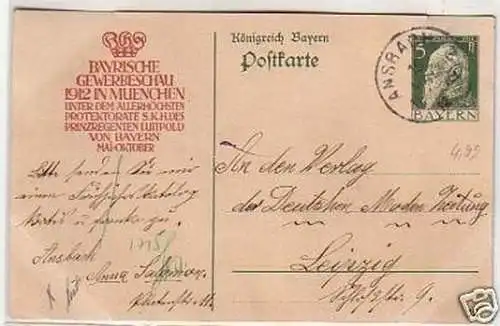 BAYRISCHE
GEWERBESCHAU
1912 IN MUENCHEN
UNTER DEM ALLERHÖCHSTEN
PROTEKTORATE S.K.H. DES
PRINZREGENTEN LUITPOLD
VON BAYERN
MAI-OKTOBER
Königreich Bayern
Postkarte
ANSBACH
5 Pf
BAYERN
4,99
Bitte senden Sie mir
einen
gratis u. franko zu.
Ansbach
Anna
1775
An den Verlag
der Deutschen Moden Zeitung
Leipzig
9.